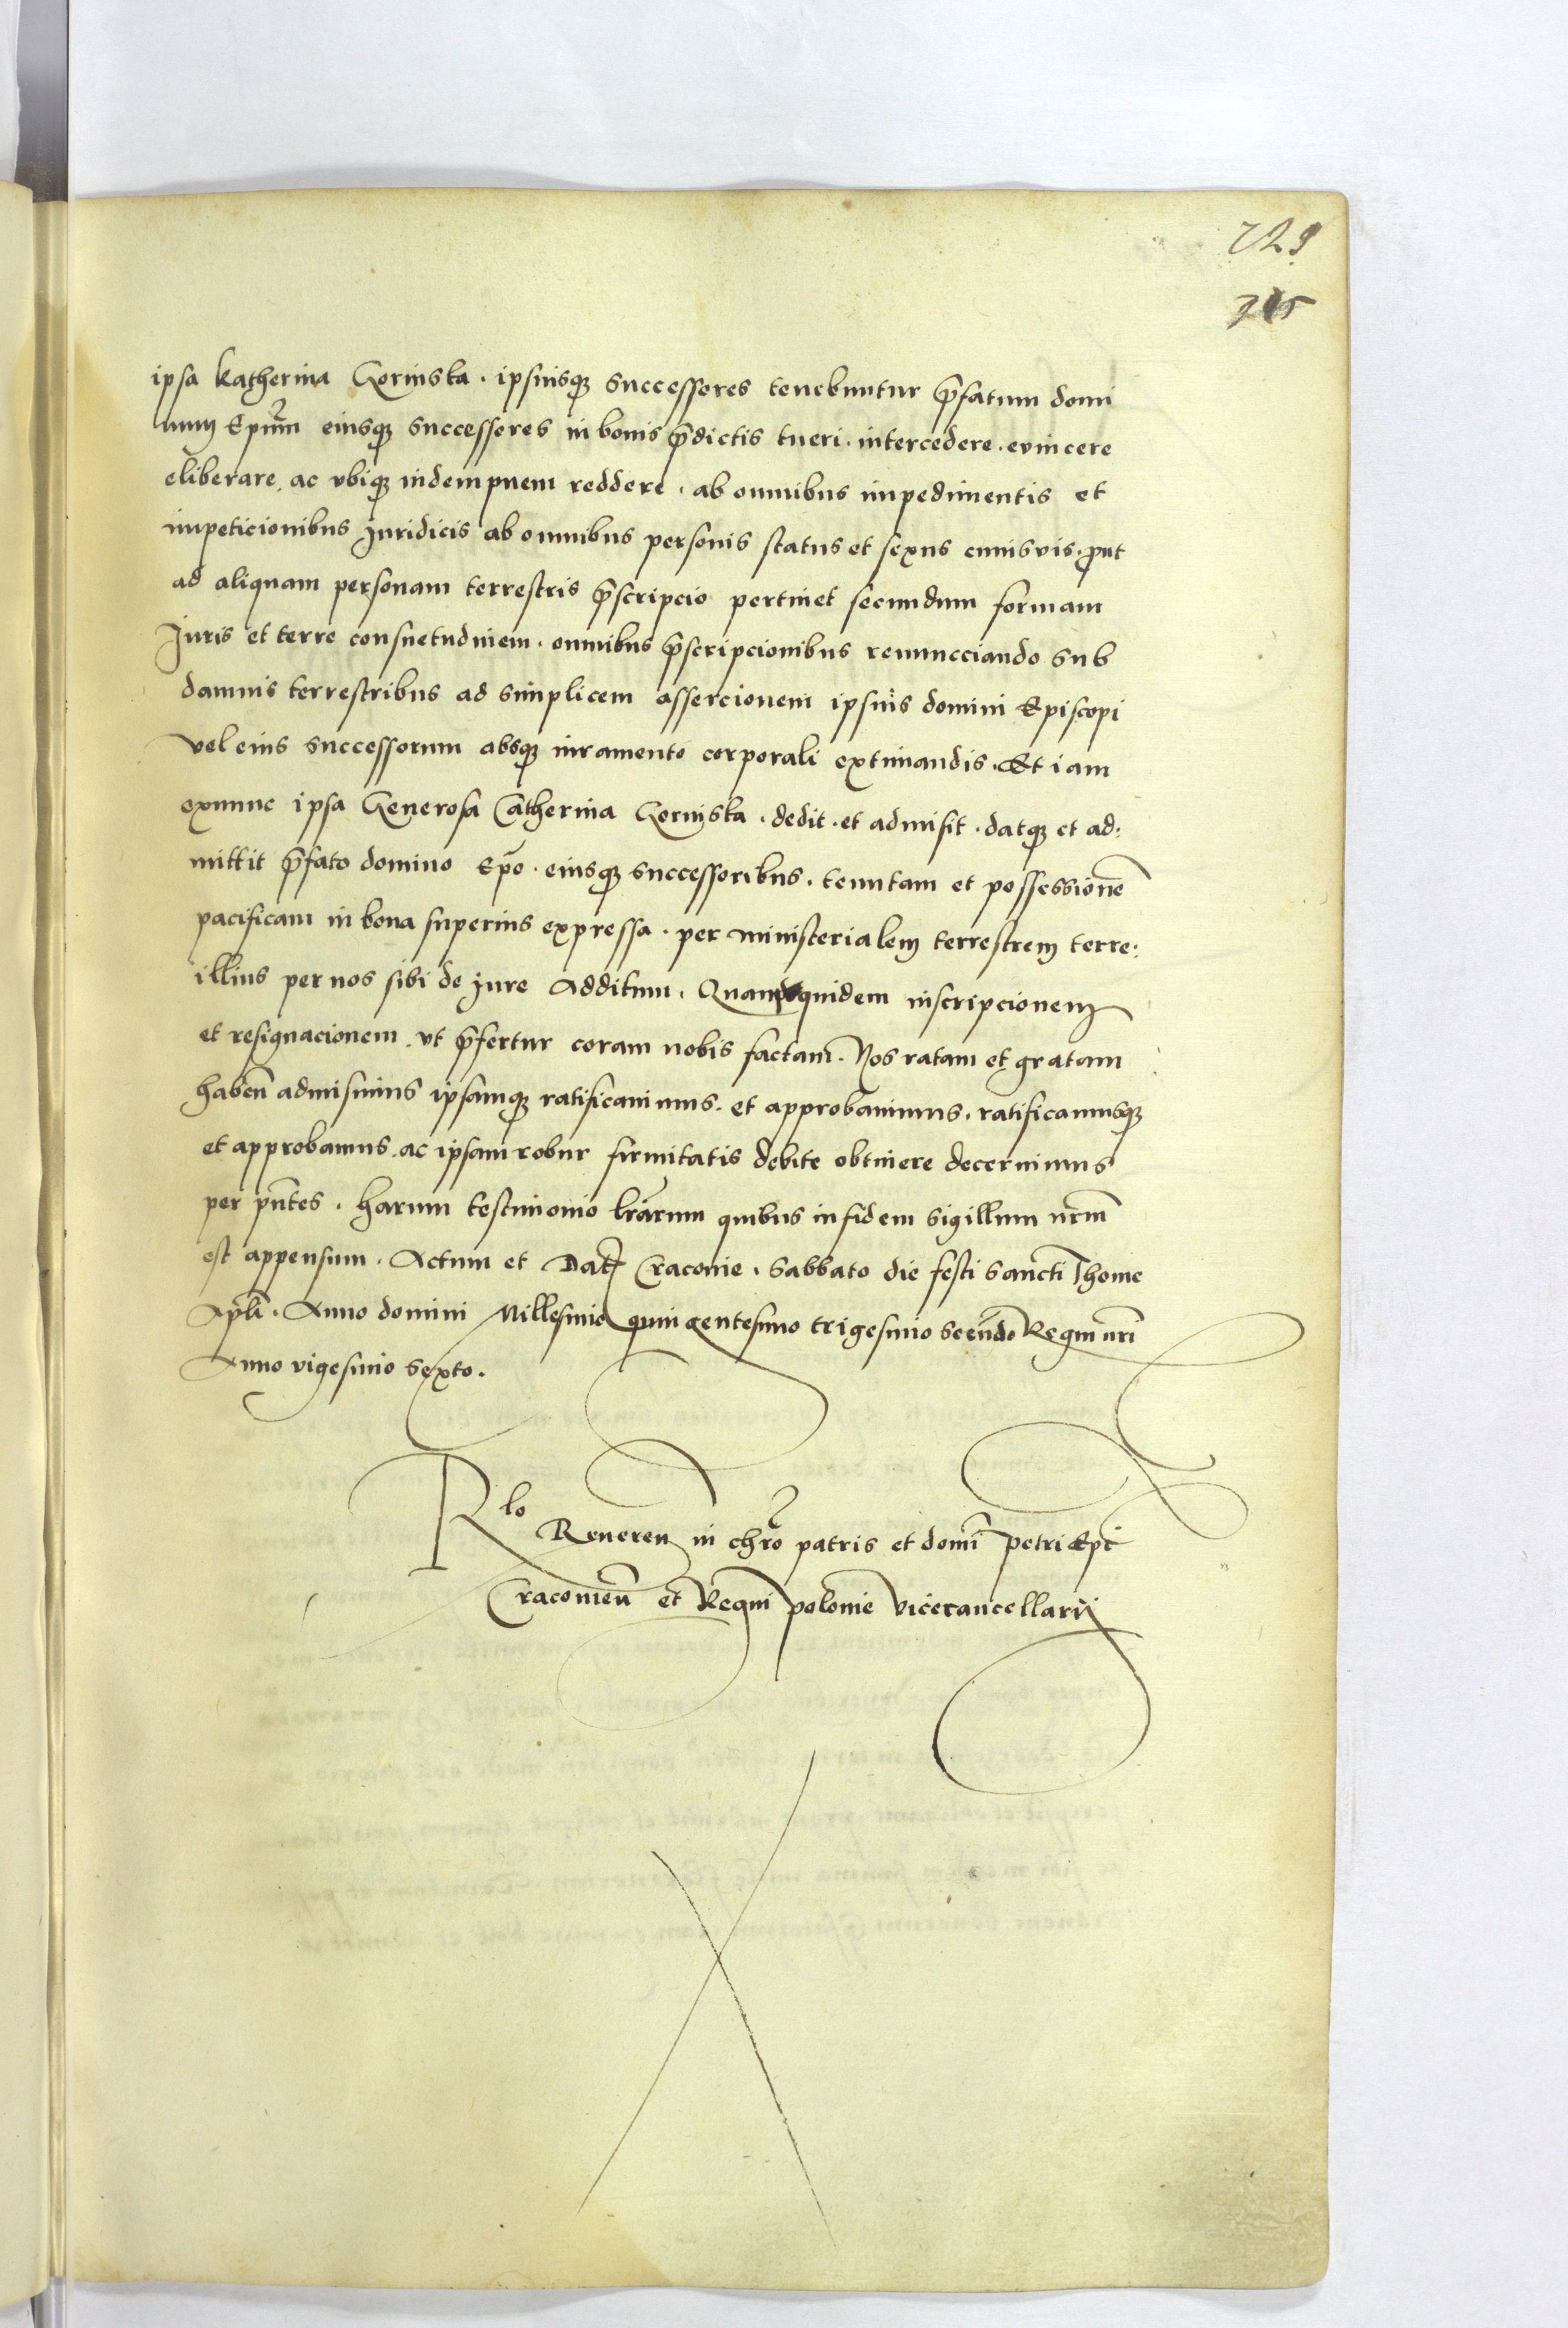 229
ipsa Katherina Gorinska . ipsiusq successores tenebuntur p̄fatum domi
num Ep̄um eiusq successores in bonis p̄dictis tueri . intercedere . evincere
eliberare . ac vbiq indempnem reddere . ab omnibus impedimentis et
impeticionibus Juridicis ab omnibus personis status et sexus cuiusvis . put
ad aliquam personam terrestris p̄scripcio pertinet secundum formam
Juris et terre consuetudinem . omnibus p̄scripcionibus renuncciando sub
damnis terrestribus ad simplicem assercionem ipsius domini Episcopi
vel eius successorum absq iuramento corporali extimandis . Et iam
exnunc ipsa Generosa Catherina Gorinska . dedit . et admisit . datq et ad:
mittit p̄fato domino Ep̄o . eiusq successoribus . tenutam et possessionē
pacificam in bona superius expressa . per ministerialem terrestrem terre:
illius per nos sibi de jure Additum . Quamquidem inscripcionem
et resignacionem . vt p̄fertur coram nobis factam . Nos ratam et gratam
haben̄ admisimus ipsamq ratificavimus . et approbavimus . ratificamusq
et approbamus . ac ipsam robur firmitatis debite obtinere decernimus
per pn̄tes . harum testimonio lr̄arum quibus in fidem sigillum nr̄m
est appensum . Actum et Dat Cracovie . Sabbato die festi Sancti Thome
Apl̄i . Anno domini Millesimo quingentesimo trigesimo secūndo Regni nr̄i
Anno vigesimo sexto .
Rlo
Reveren in chr̄o patris et domī Petri Ep̄i
Cracovien̄ et Regni Polonie vicecancellarij